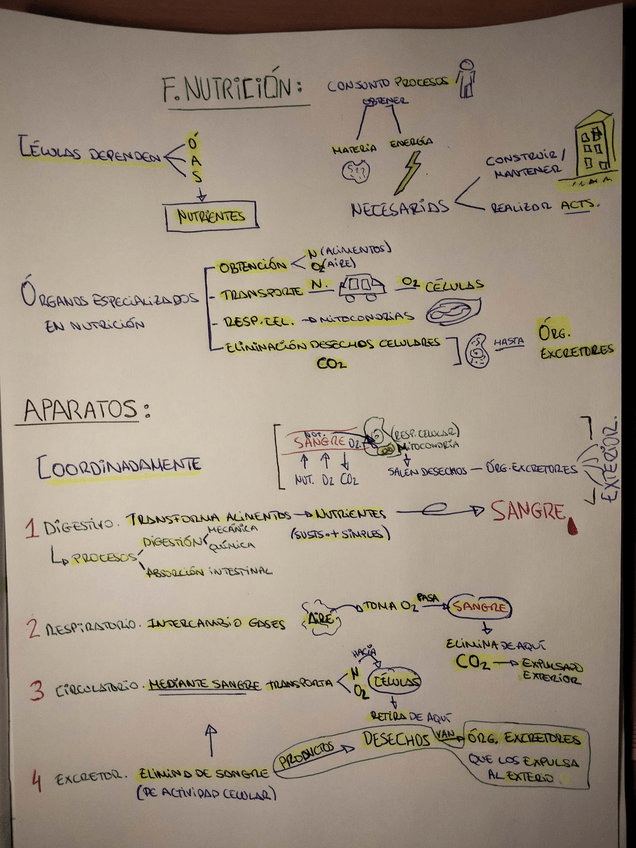 F. NUTRICIÓN:
CONJUNTO PROCESOS
OBTENER
MATERIA ENERGÍA
CÉLULAS DEPENDEN
Ó
A
S
NUTRIENTES
NECESARIAS
CONSTRUIR/
MANTENER
REALIZAR ACTS.
ÓRGANOS ESPECIALIZADOS
EN NUTRICIÓN
OBTENCIÓN
N (ALIMENTOS)
O2 (AIRE)
- TRANSPORTE N. O2 CÉLULAS
- RESP. CEL. → MITOCONDRIAS
- ELIMINACIÓN DESECHOS CELULARES
CO2
HASTA
ÓRG.
EXCRETORES
APARATOS:
COORDINADAMENTE
SANGRE O2
NUT. O2 CO2
(RESP. CELULAR)
MITOCONDRIA
SALEN DESECHOS — ÓRG. EXCRETORES
EXTERIOR.
1 DIGESTIVO. TRANSFORMA ALIMENTOS → NUTRIENTES → SANGRE
(SUSTS. + SIMPLES)
PROCESOS
DIGESTIÓN
MECÁNICA
QUÍMICA
ABSORCIÓN INTESTINAL
2 RESPIRATORIO. INTERCAMBIO GASES AIRE → TOMA O2 PASA SANGRE
ELIMINA DE AQUÍ
CO2 → EXPULSADO
EXTERIOR
3 CIRCULATORIO. MEDIANTE SANGRE TRANSPORTA
N
O2
HACIA
CÉLULAS
RETIRA DE AQUÍ
DESECHOS VAN ÓRG. EXCRETORES
QUE LOS EXPULSA
AL EXTERIO.
PRODUCTOS
4 EXCRETOR. ELIMINA DE SANGRE
(DE ACTIVIDAD CELULAR)